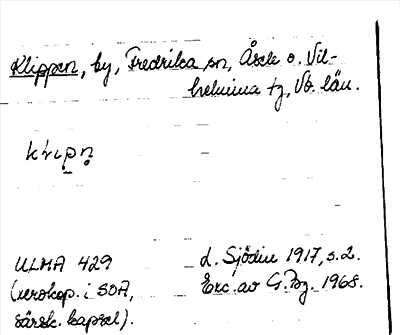 Klippen, by, Fredrika sn, Åsele o. Vil-
helmina tg, Vb. län.
ULMA 429
(xerokop. i SOA,
särsk. kapsel).
L. Sjödin 1917, s. 2.
Exc. av G. Bg. 1968.